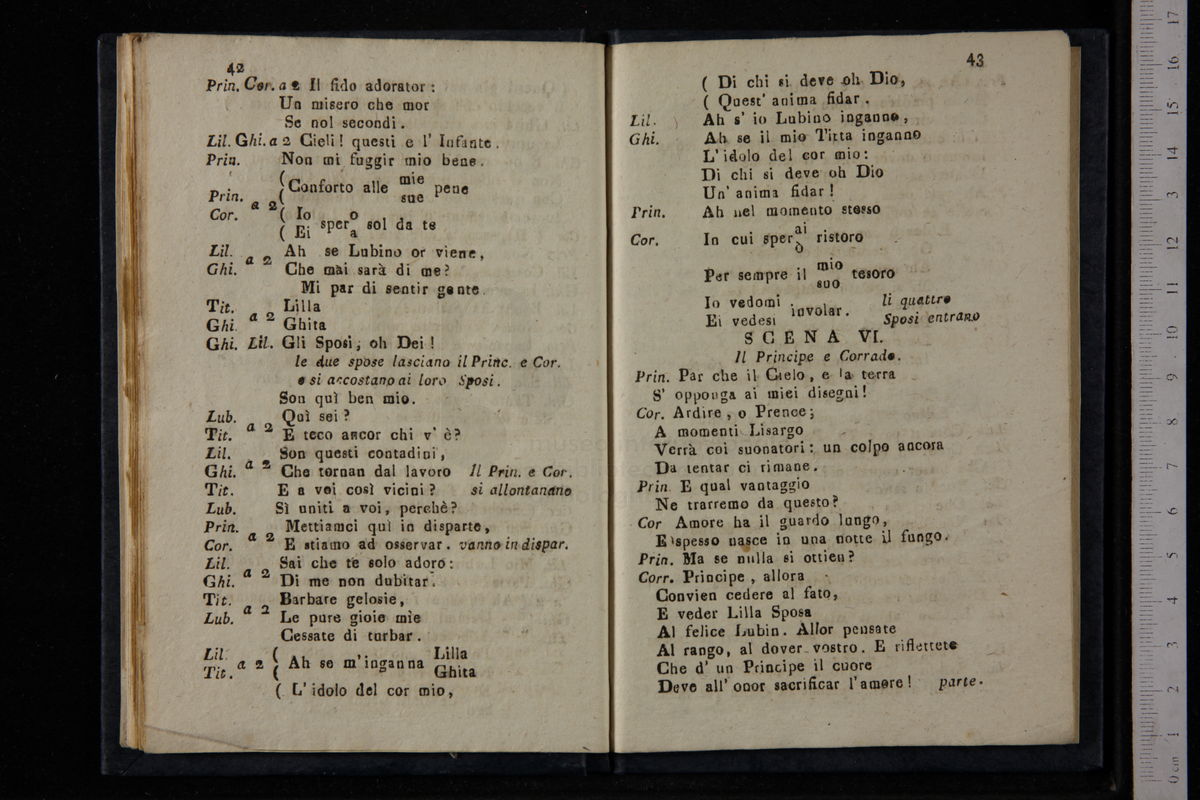 42
Prin. Cor. a 2 Il fido adorator :
Un misero che mor
Se nol secondi .
Lil. Ghi. a 2 Cieli ! questi e l' Infante .
Prin. Non mi fuggir mio bene .
Prin. a 2 ( ( Conforto alle mie sue pene
Cor. ( Io ( Ei spero a sol da te
Lil. a 2 Ah se Lubino or viene ,
Ghi. Che mai sarà di me ?
Mi par di sentir gente .
Tit. a 2 Lilla
Ghi. Ghita
Ghi. Lil. Gli Sposi , oh Dei !
le due spose lasciano il Princ. e Cor.
e si accostano ai loro Sposi .
Son quì ben mio .
Lub. a 2 Quì sei ?
Tit. E teco ancor chi v' è ?
Lil. a 2 Son questi contadini ,
Ghi. Che tornan dal lavoro Il Prin. e Cor.
Tit. E a voi così vicini ? si allontanano
Lub. Sì uniti a voi , perchè ?
Prin. a 2 Mettiamci quì in disparte ,
Cor. E stiamo ad osservar . vanno in dispar.
Lil. a 2 Sai che te solo adoro :
Ghi. Di me non dubitar .
Tit. a 2 Barbare gelosie ,
Lub. Le pure gioie mie
Cessate di turbar .
Lil. Tit. a 2 ( ( Ah se m' inganna Lilla Ghita
( L' idolo del cor mio ,
43
( Di chi si deve oh Dio ,
( Quest' anima fidar .
Lil. Ah s' io Lubino inganno ,
Ghi. Ah se il mio Titta inganno
L' idolo del cor mio :
Di chi si deve oh Dio
Un' anima fidar !
Prin. Ah nel momento stesso
Cor. In cui sperai ò ristoro
Per sempre il mio suo tesoro
Io vedomi Ei vedesi involar . li quattro Sposi entrano
SCENA VI.
Il Principe e Corrado .
Prin. Par che il Cielo , e la terra
S' opponga ai miei disegni !
Cor. Ardire , o Prence ;
A momenti Lisargo
Verrà coi suonatori : un colpo ancora
Da tentar ci rimane .
Prin. E qual vantaggio
Ne trarremo da questo ?
Cor Amore ha il guardo lungo ,
E spesso nasce in una notte il fungo .
Prin. Ma se nulla si ottien ?
Corr. Principe , allora
Convien cedere al fato ,
E veder Lilla Sposa
Al felice Lubin . Allor pensate
Al rango , al dover vostro . E riflettete
Che d' un Principe il cuore
Deve all' onor sacrificar l' amore ! parte .
0 cm 1 2 3 4 5 6 7 8 9 10 11 12 13 14 15 16 17